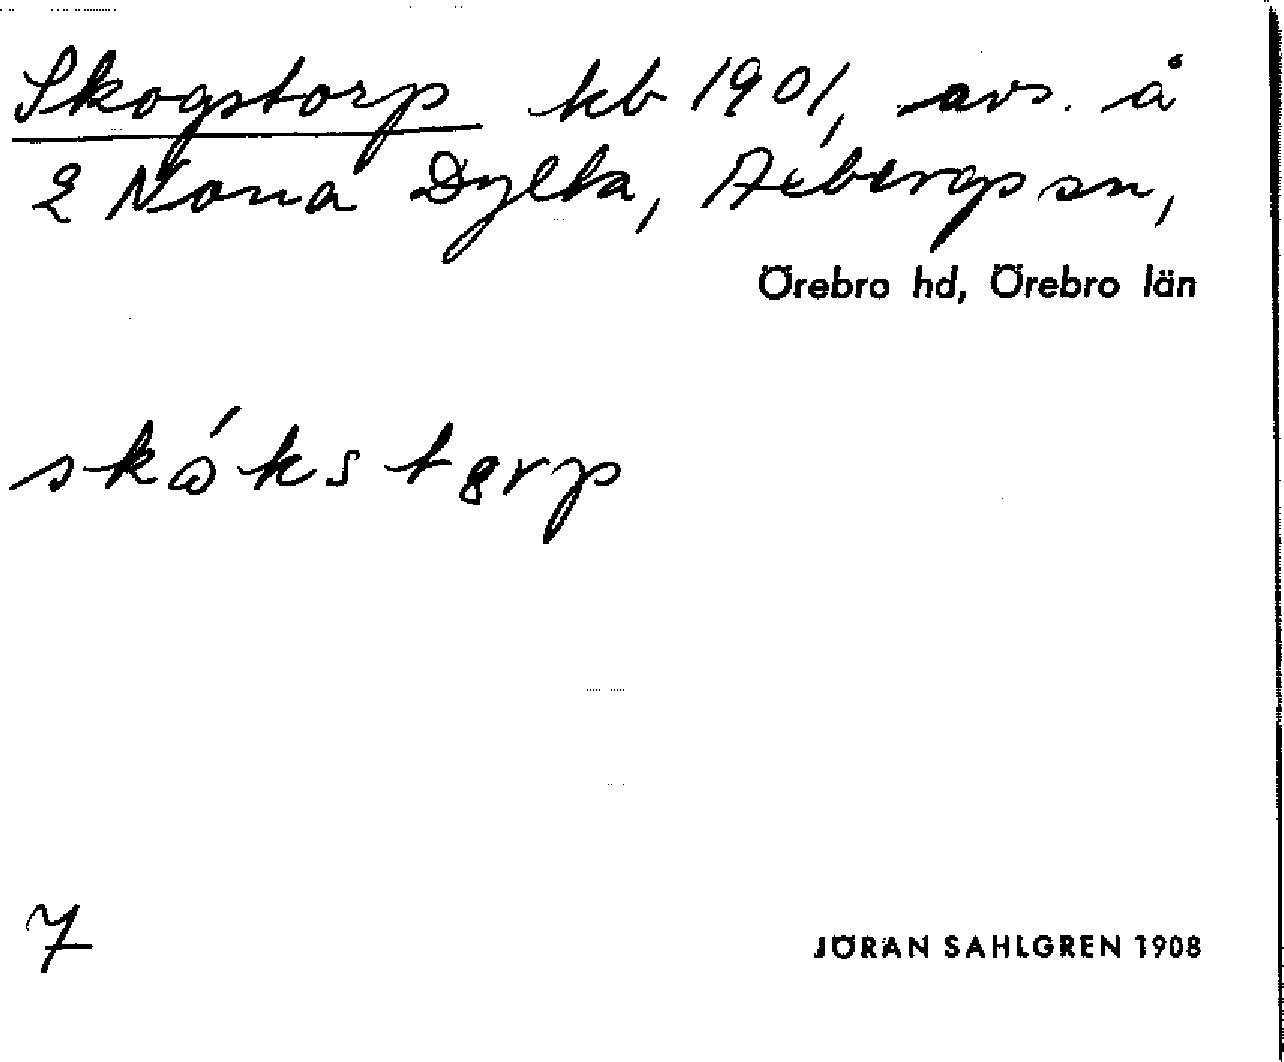 Skogstorp kb 1901, avs. å
2 Norra Dylta, Axbergs sn,
Örebro hd, Örebro län
7
JÖRAN SAHLGREN 1908